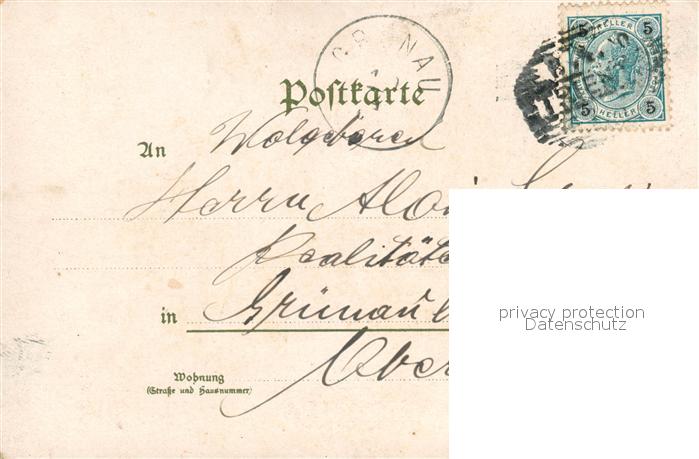 GRÜNAU
5 HELLER 5
5 HELLER 5
Postkarte
Wolgeboren
An
Herrn Aloi
Realitäte
in Grünau
Ober
Wohnung
(Straße und Hausnummer)
privacy protection
Datenschutz